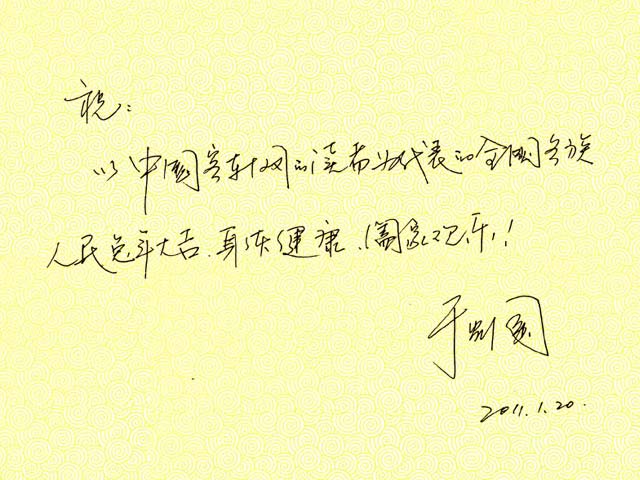 祝：
以中国客车网的读者为代表的全国各族
人民兔年大吉、身体健康、阖家欢乐！
于
2011.1.20.